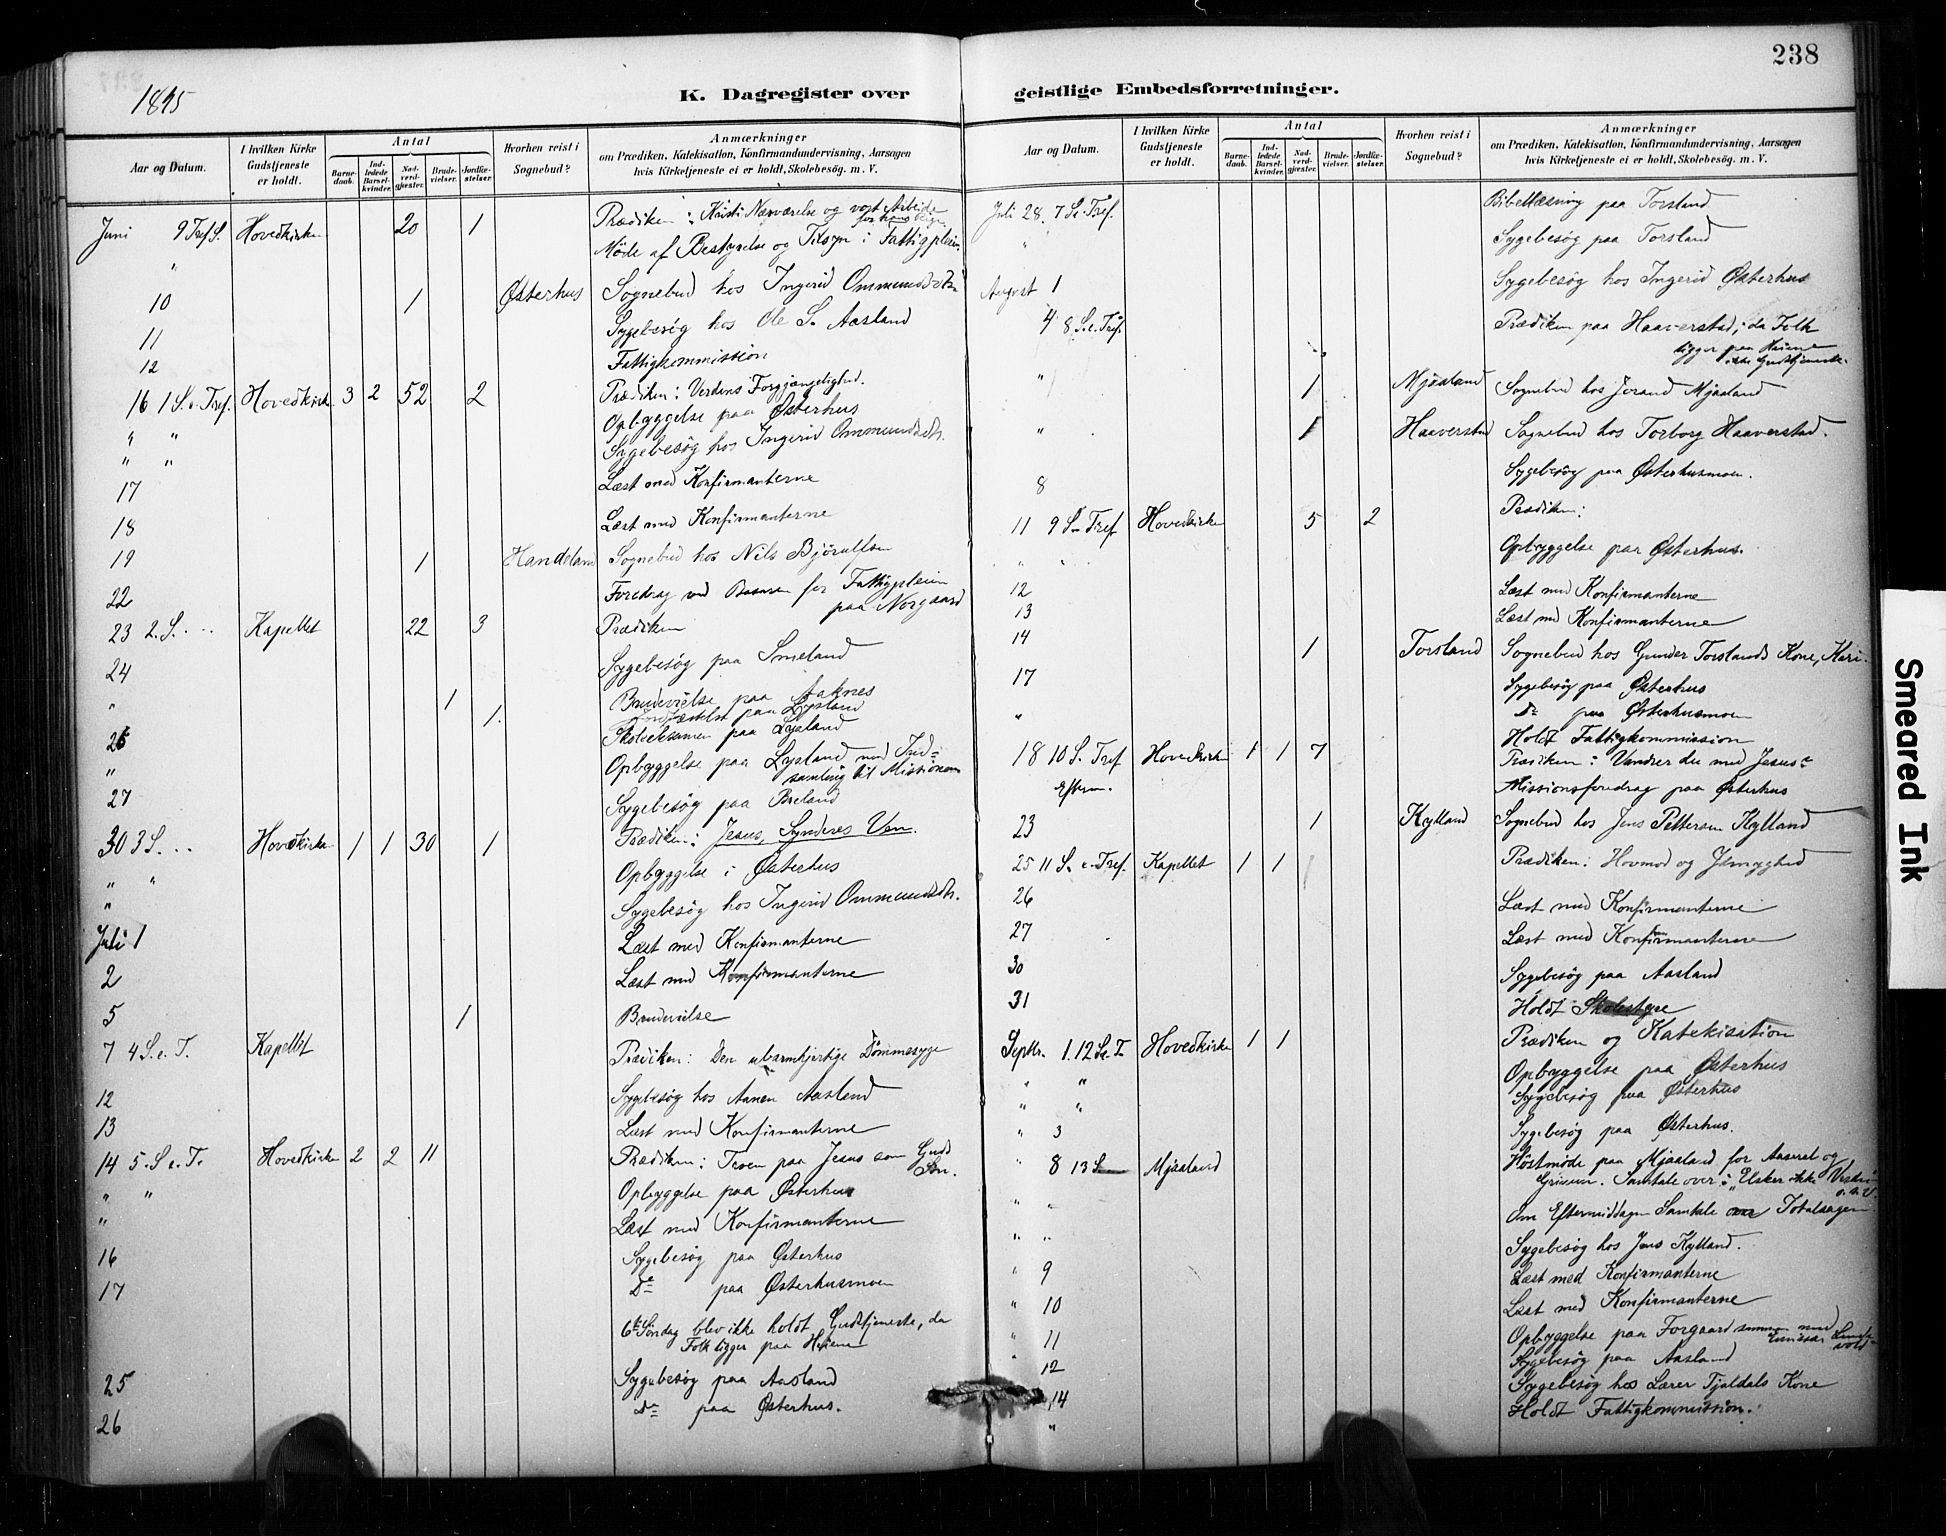 238
1895
K. Dagregister over geistlige Embedsforretninger.
Aar og Datum. I hvilken Kirke Gudstjeneste er holdt. Antal Barnedaab. Indledede Barselkvinder. Nadverdgjæster. Brudevielser. Jordfæstelser. Hvorhen reist i Sognebud? Anmærkninger om Prædiken, Katekisation, Konfirmandundervisning, Aarsagen hvis Kirketjeneste ei er holdt, Skolebesög. m. V.
Juni 9 Tref S. Hovedkirken 20 1 Prædiken: Kristi Nærværelse og vort Arbeide for hans Rige
" Möde af Bestyrelse og Tilsyn i Fattigpleien.
10 1 Østerhus Sognebud hos Ingerid Ommundsdtr.
11 Sygebesög hos Ole S. Aasland
12 Fattigkommission
16 1 S. e. Tref. Hovedkirk 3 2 52 2 Prædiken: Verdens Forgjængelighed.
" " Opbyggelse paa Østerhus
" " Sygebesög hos Ingerid Ommundsdtr.
17 Læst med Konfirmanterne
18 Læst med Konfirmanterne
19 1 Handeland Sognebud hos Nils Björulfsen
22 Foredrag ved Basaren for Fattigpleien
paa Norgaard
23 2. S. ... Kapellet 22 3 Prædiken
24 Sygebesög paa Smeland
" 1 Brudevielse paa Aaknes
1. Jordfæstelse paa Lysland
26 Skoleeksamen paa Lysland
" Opbyggelse paa Lysland med Ind-
samling til Missionen
27 Sygebesög paa Breland
30 3 S. ... Hovedkirke 1 1 30 1 Prædiken: Jesus, Synderes Ven.
" " Opbyggelse i Østerhus
" Sygebesög hos Ingerid Ommundsdtr.
Juli 1 Læst med Konfirmanterne
2 Læst med Konfirmanterne
5 1 Brudevielse
7 4 S. e. T. Kapellet Prædiken: Den ubarmhjertige Dömmesyge
12 Sygebesög hos Aanen Aasland
13 Læst med Konfirmanterne
14 5. S. e. T. Hovedkirken 2 2 11 Prædiken: Troen paa Jesus som Guds
Sön.
" " Opbyggelse paa Østerhus
" Læst med Konfirmanterne
16 Sygebesög paa Østerhus
17 Do paa Østerhusmoen
6te Söndag blev ikke holdt Gudstjeneste, da
Folk ligger paa Heiene
25 Sygebesög paa Aasland
26 Do paa Østerhus.
Aar og Datum. I hvilken Kirke Gudstjeneste er holdt. Antal Barnedaab. Indledede Barselkvinder. Nadverdgjæster. Brudevielser. Jordfæstelser. Hvorhen reist i Sognebud? Anmærkninger om Prædiken, Katekisation, Konfirmandundervisning, Aarsagen hvis Kirketjeneste ei er holdt, Skolebesög. m. V.
Juli 28. 7 S. e. Tref. Bibellæsning paa Torsland
" Sygebesög paa Torsland
August 1 Sygebesög hos Ingerid Østerhus
4 8 S. e. Tref. Prædiken paa Haaverstad, da Folk
ligger paa Heiene
Gudstjeneste.
" 1 Mjaaland Sognebud hos Jorand Mjaaland
" 1 Haaverstad Sognebud hos Torborg Haaverstad.
8 Sygebesög paa Østerhusmoen.
11 9 S. e. Tref Hovedkirken 5 2 Prædiken:
" Opbyggelse paa Østerhus.
12 Læst med Konfirmanterne
13 Læst med Konfirmanterne
14 1 Torsland Sognebud hos Gunder Torslands Kone, Kari.
17 Sygebesög paa Østerhus
" Do paa Østerhusmoen
Holdt Fattigkommission
18 10 S. Tref Hovedkirken 1 1 7 Prædiken: Vandrer du med Jesus?
Efterm. Missionsforedrag paa Østerhus
23 1 Kylland Sognebud hos Jens Pettersen Kylland
25 11 S. e. Tref. Kapellet 1 1 Prædiken: Hovmod og Ydmyghed
26 Læst med Konfirmanterne
27 Læst med Konfirmanterne
30 Sygebesög paa Aasland
31 Holdt Skolestyre
Septbr. 1. 12 S. e. T Hovedkirke 1 1 Prædiken og Katekisation
" " Opbyggelse paa Østerhus
" " Sygebesög paa Østerhus
" 3 Sygebesög paa Østerhus.
" 8 13 S Mjaaland Höstmöde paa Mjaaland for Aaseral og
Grinum. Samtale over: "Elsker ikke Verden
o. s. v.
" " Om Eftermiddagen Samtale over Totalsagen.
" " Sygebesög hos Jens Kylland.
" 9 Læst med Konfirmanterne
" 10 Læst med Konfirmanterne
" 11 Opbyggelse paa Forgaard sammen med
" 12 Sygebesög paa Aasland
14 Sygebesög hos Lærer Tjaldals Kone
" Holdt Fattigkommission.
Smeared Ink